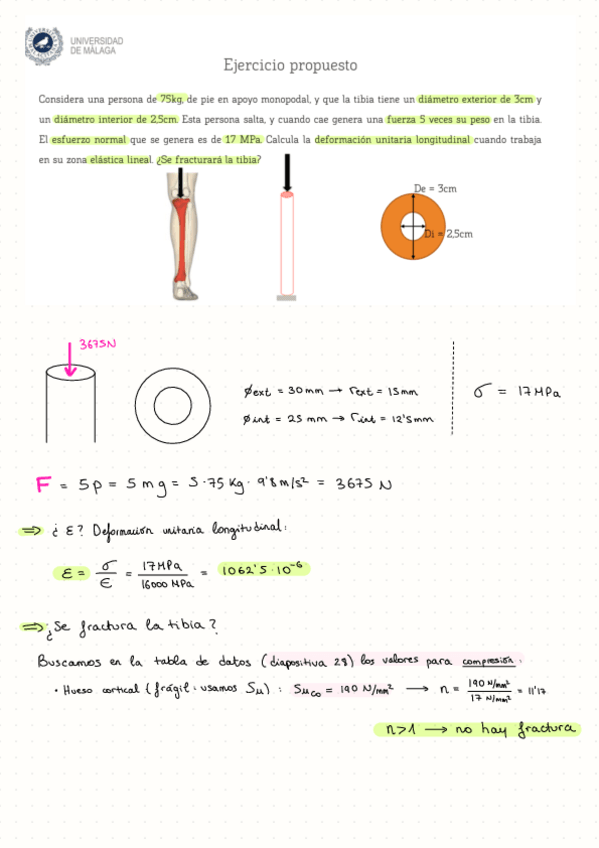 UNIVERSIDAD
DE MÁLAGA
Ejercicio propuesto
Considera una persona de 75kg, de pie en apoyo monopodal, y que la tibia tiene un diámetro exterior de 3cm y
un diámetro interior de 2,5cm. Esta persona salta, y cuando cae genera una fuerza 5 veces su peso en la tibia.
El esfuerzo normal que se genera es de 17 MPa. Calcula la deformación unitaria longitudinal cuando trabaja
en su zona elástica lineal. ¿Se fracturará la tibia?
De = 3cm
Di = 2,5cm
3675N
Øext = 30mm → rext = 15mm
Øint = 25 mm → rint = 12'5mm
σ = 17MPa
F = 5p = 5mg = 5·75Kg·9'8m/s² = 3675 N
⇒ ¿ε? Deformación unitaria longitudinal:
ε = σ/E = 17MPa/16000 MPa = 1062'5·10⁻⁶
⇒ ¿Se fractura la tibia?
Buscamos en la tabla de datos (diapositiva 28) los valores para compresión:
· Hueso cortical (frágil: usamos Su): Suco = 190 N/mm² → n = 190 N/mm²/17 N/mm² = 11'17
n>1 → no hay fractura